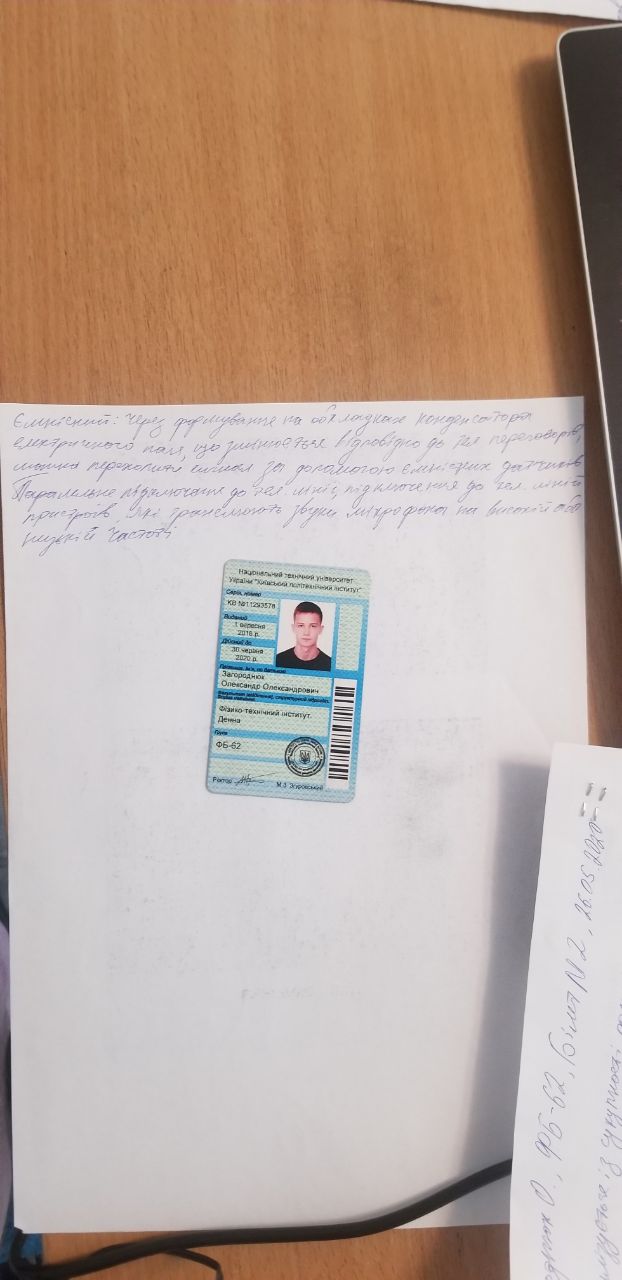 Ємнісний: через формування на обкладках конденсатора
електричного поля, що змінюється відповідно до тел переговорів,
можна перехопити сигнал за допомогою ємнісних датчиків
Паралельне підключення до тел. лінії, підключення до тел. ліній
пристроїв, які транслюють звуки мікрофона на високій або
низькій частоті
Національний технічний університет
України "Київський політехнічний інститут"
Серія, номер
КВ №11293578
Виданий
1 вересня
2016 р.
Дійсний до
30 червня
2020 р.
Прізвище, ім'я, по батькові
Загороднюк
Олександр Олександрович
Факультет (відділення), структурний підрозділ.
Форма навчання
Фізико-технічний інститут.
Денна
Група
ФБ-62
Ректор М.З. Згуровський
О., ФБ-62, Білет №2, 26.05.2020
із сукупності